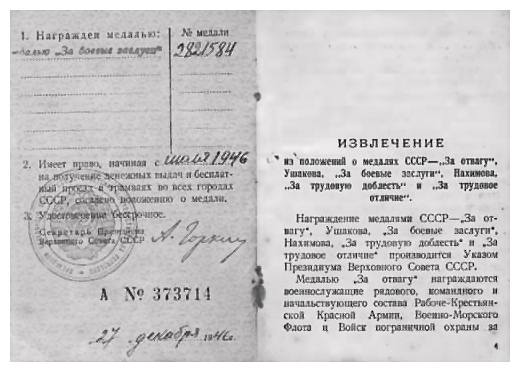 1. Награжден медалью:
№ медали
-далью „За боевые заслуги"
2821584
2. Имеет право, начиная с мая 1946
на получение денежных выдач и бесплат-
ный проезд в трамваях во всех городах
СССР, согласно положению о медали.
3. Удостоверение бессрочное.
Секретарь Президиума
Верховного Совета СССР
А. Горкин
А № 373714
27 декабря 1946 г.
ИЗВЛЕЧЕНИЕ
из положений о медалях СССР—„За отвагу",
Ушакова, „За боевые заслуги", Нахимова,
„За трудовую доблесть" и „За трудовое
отличие".
Награждение медалями СССР—„За от-
вагу", Ушакова, „За боевые заслуги",
Нахимова, „За трудовую доблесть" и „За
трудовое отличие" производится Указом
Президиума Верховного Совета СССР.
Медалью „За отвагу" награждаются
военнослужащие рядового, командного и
начальствующего состава Рабоче-Крестьян-
ской Красной Армии, Военно-Морского
Флота и Войск пограничной охраны за
4